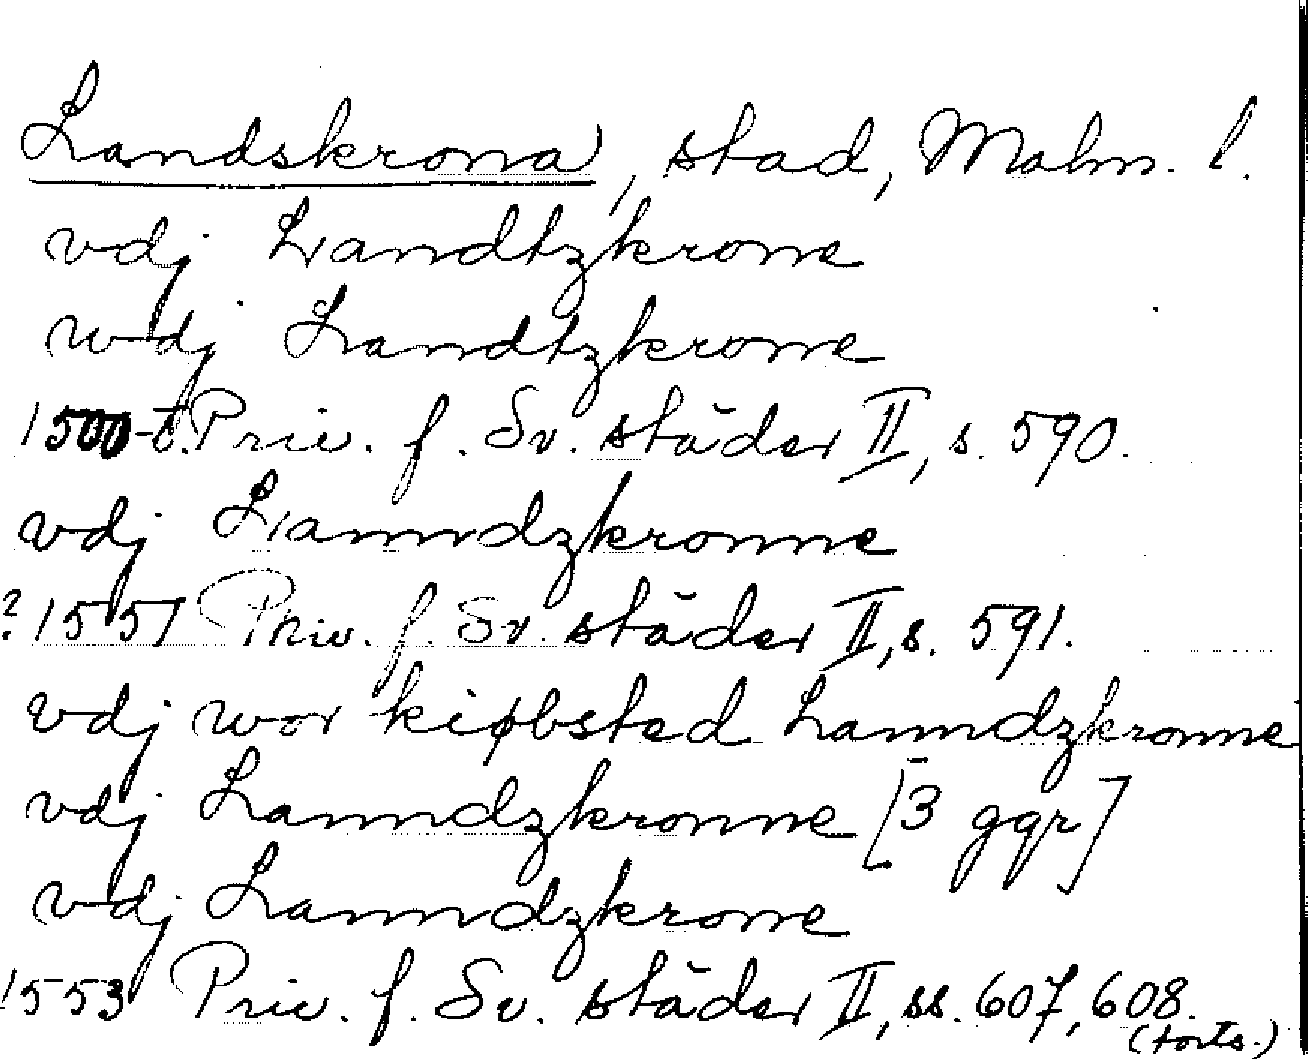 Landskrona, stad, Malm. l.
vdj Landtzkrone
wdj Landtzkrone
1500-t. Priv. f. Sv. städer II, s. 590.
vdj Lanndzkronne
? 1551 Priv. f. Sv. städer II, s. 591.
vdj wor kiøbsted Lanndzkronne
vdj Lanndzkronne [3 ggr]
vdj Lanndzkrone
1553 Priv. f. Sv. städer II, ss. 607, 608.
(forts.)